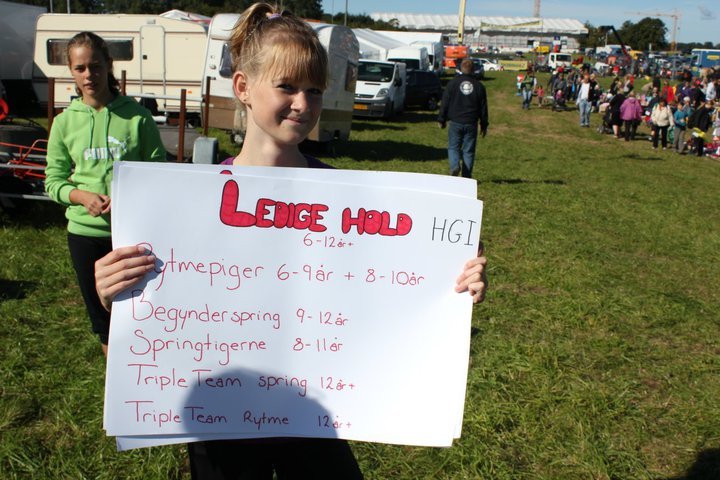 LEDIGE HOLD HGI
6-12år+
Rytmepiger 6-9år + 8-10år
Begynderspring 9-12år
Springtigerne 8-11år
Triple Team spring 12år+
Triple Team Rytme 12år+
PUMA